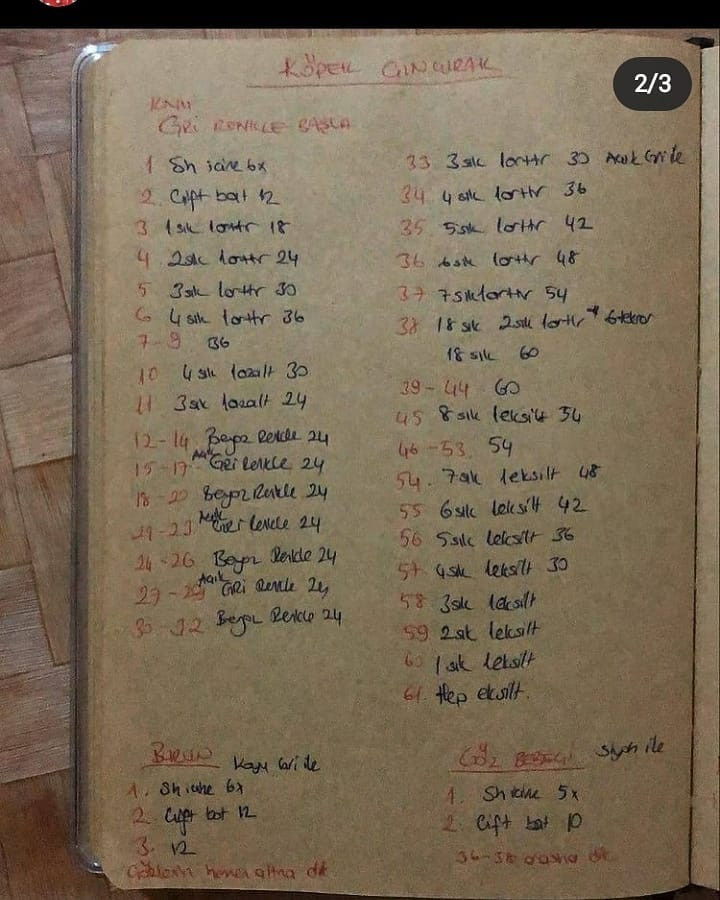 2/3
KÖPEK ÇINGIRAK
GRİ RENKLE BAŞLA
1 Sh içine 6x
2. Çift bat 12
3 1sık 1arttr 18
4. 2sık 1arttr 24
5 3sık 1arttr 30
6 4 sık 1arttr 36
7-9 36
10 4 sık 1azalt 30
11 3sık 1azalt 24
12-14 Beyaz Renkle 24
15-17 Açık GRİ Renkle 24
18-20 Beyaz Renkle 24
21-23 Açık GRİ renkle 24
24-26 Beyaz Renkle 24
27-29 Açık GRİ Renkle 24
30-32 Beyaz Renkle 24
33 3sık 1arttr 30 Açık Gri ile
34 4 sık 1arttr 36
35 5sık 1arttr 42
36 6sık 1arttr 48
37 7sık 1arttr 54
38 18 sık 2sık 1arttr 6tekrar
18 sık 60
39-44 60
45 8 sık 1eksilt 54
46-53. 54
54. 7sık 1eksilt 48
55 6sık 1eksilt 42
56 5sık 1eksilt 36
57 4sık 1eksilt 30
58 3sık 1eksilt
59 2sık 1eksilt
60 1sık 1eksilt
61. Hep eksilt.
BURUN Koyu Gri ile
1. Sh içine 6x
2. Çift bat 12
3. 12
Gözlerin hemen altına dik
GÖZ BEBEĞİ Siyah ile
1. Sh içine 5x
2. Çift bat 10
36-38 arasına dik